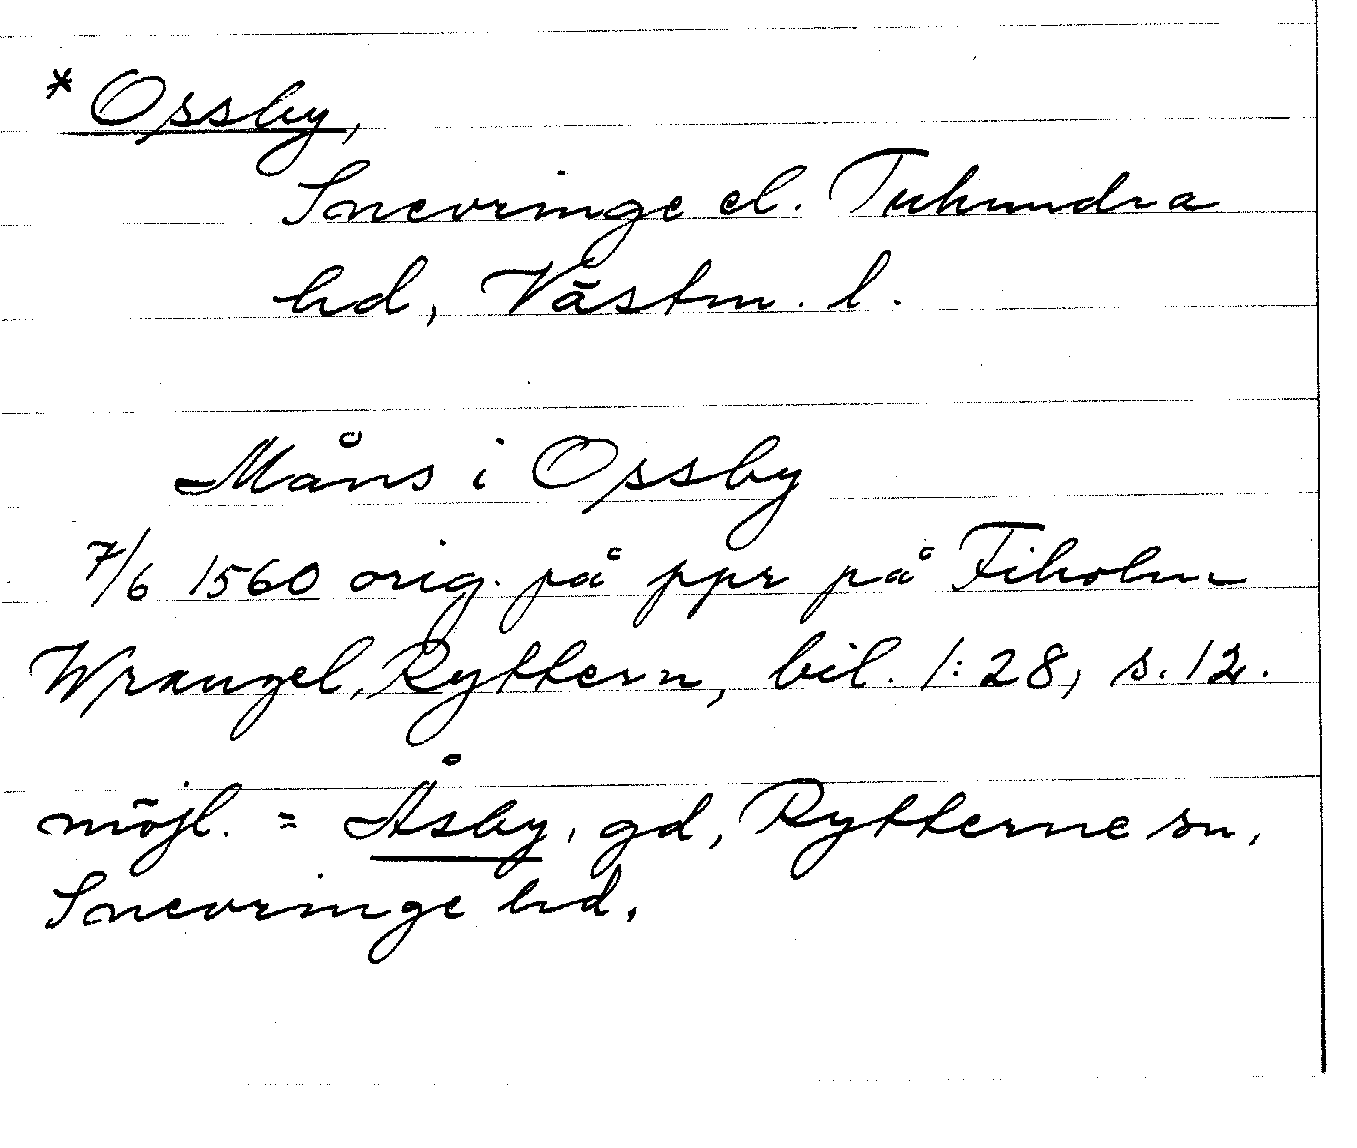 * Ossby,
Snevringe el. Tuhundra
hd, Västm. l.
Måns i Ossby
7/6 1560 orig. på ppr på Fiholm
Wrangel, Ryttern, bil. 1:28, s. 12.
möjl. = Åsby, gd, Rytterne sn,
Snevringe hd.